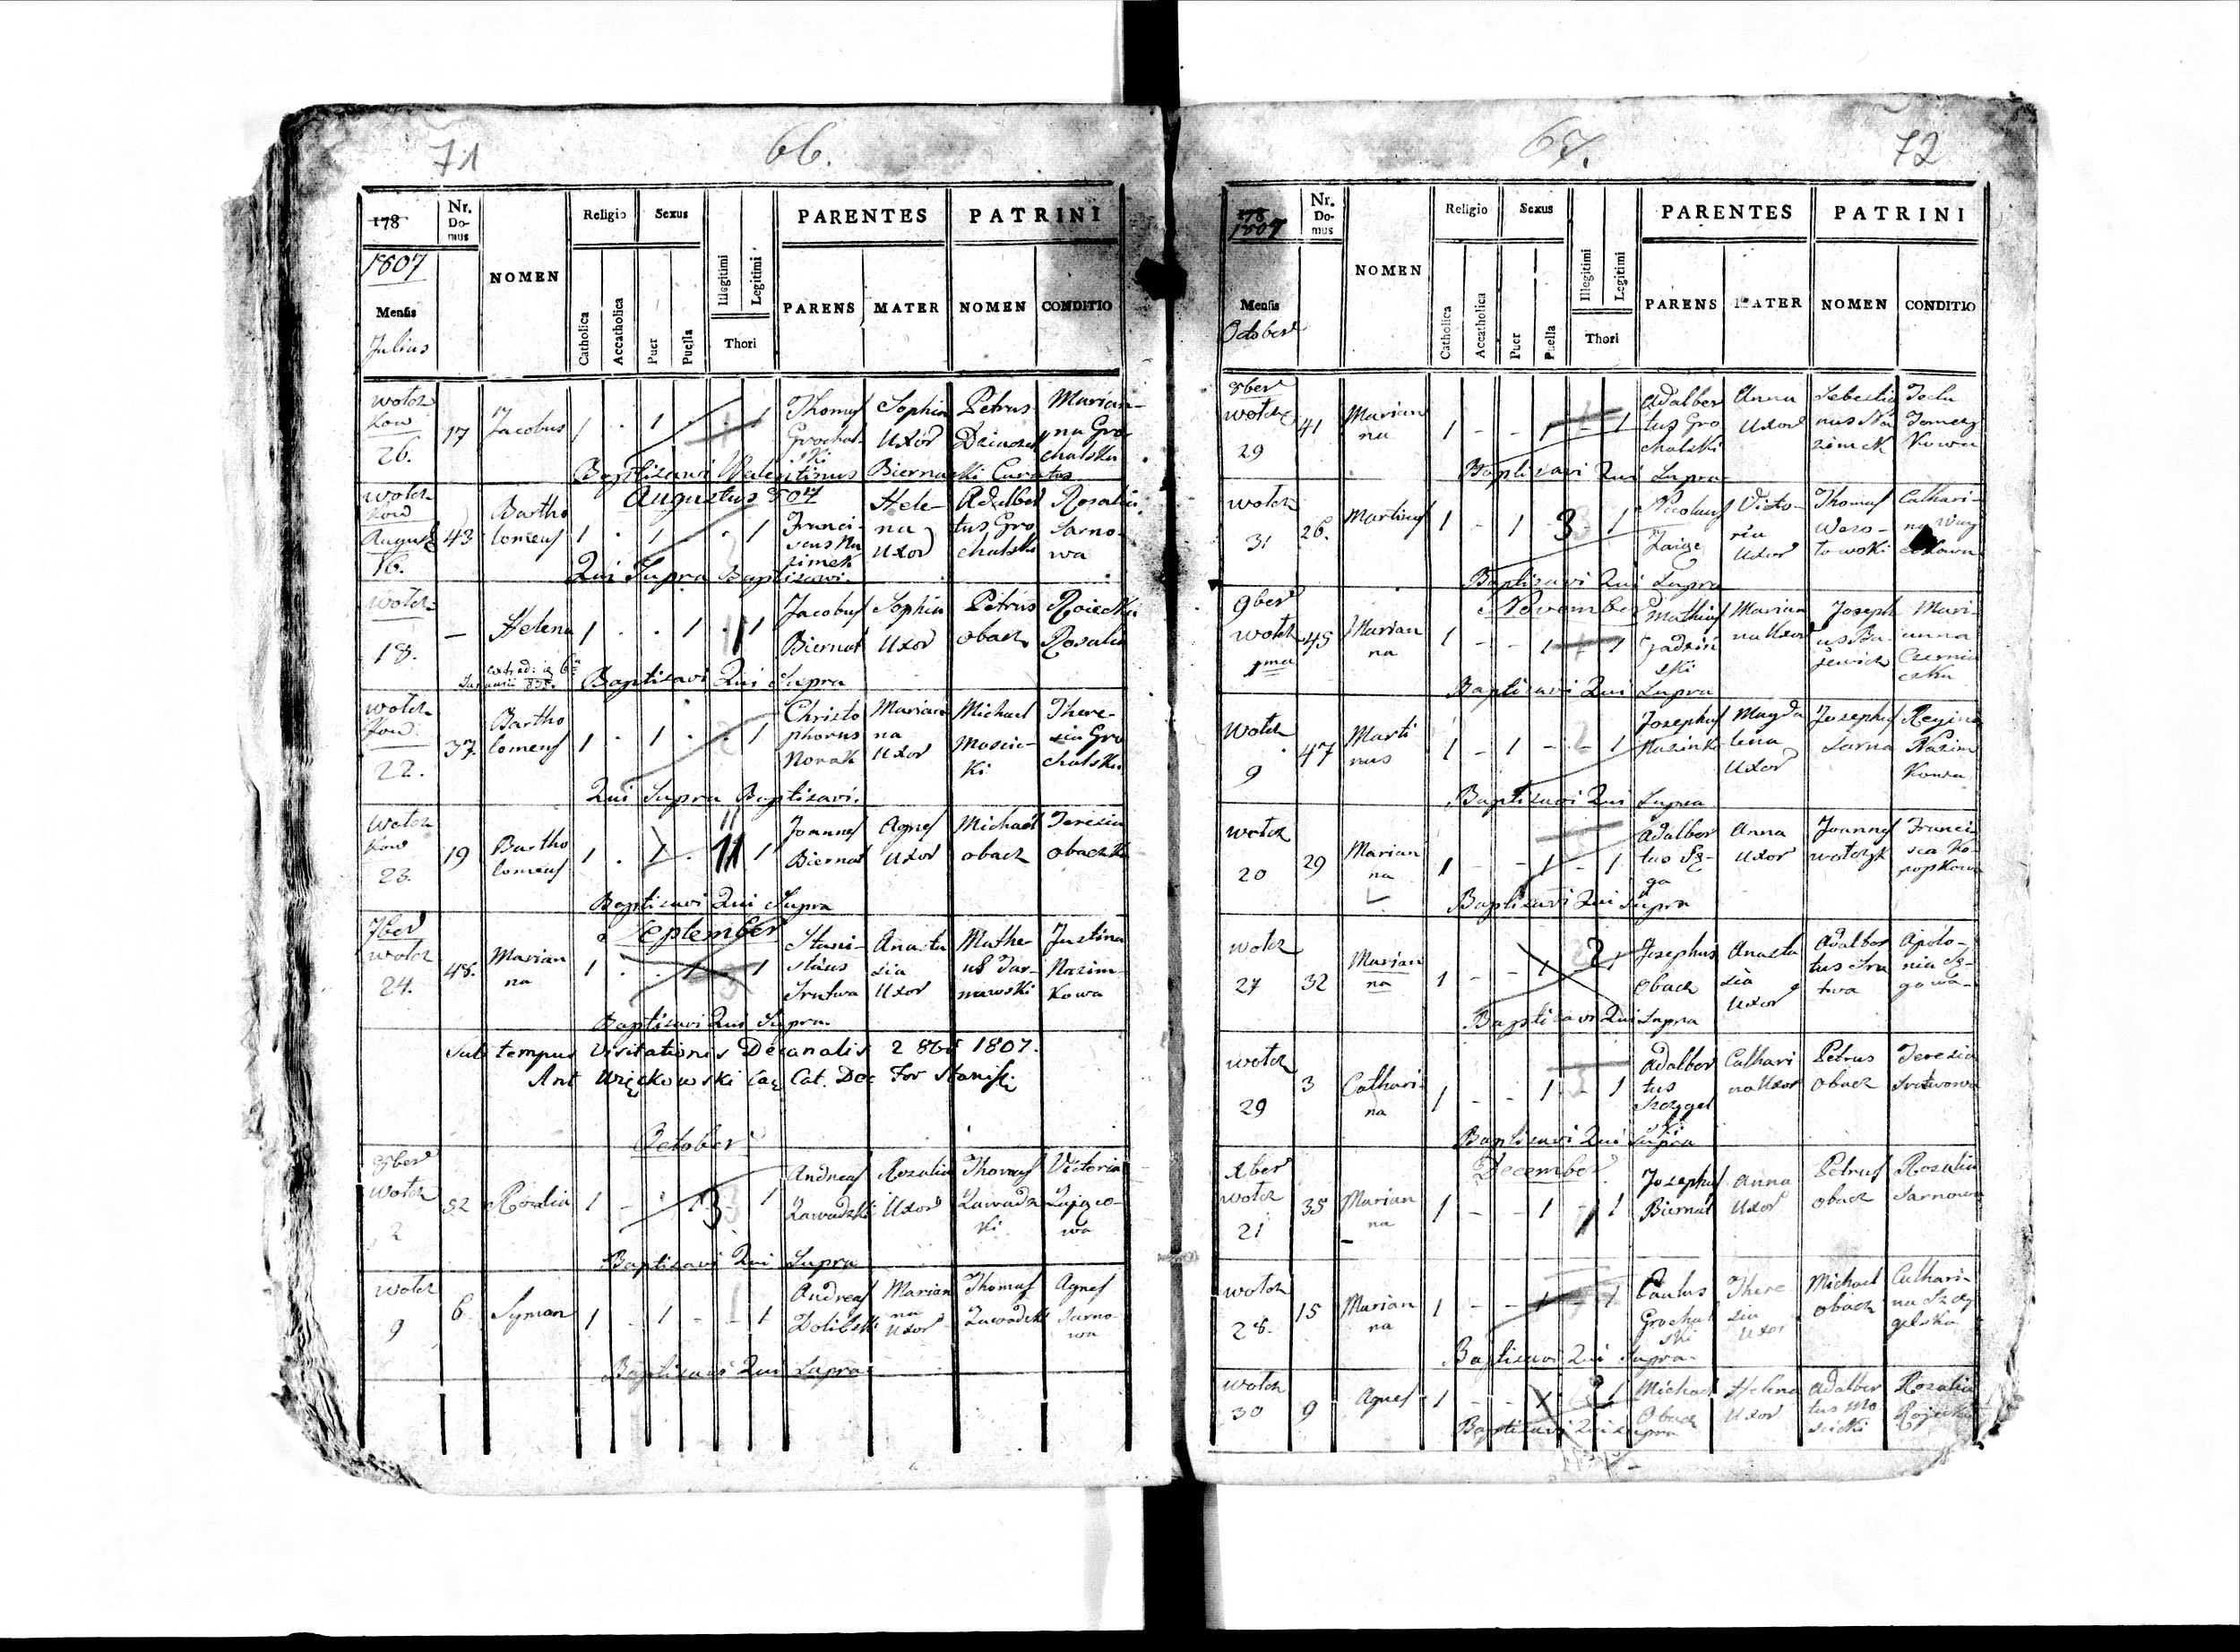 71
66.
178
1807
Mensis
Julius
Nr.
Do-
mus
NOMEN
Religio
Catholica
Accatholica
Sexus
Puer
Puella
Illegitimi
Legitimi
Thori
PARENTES
PARENS
MATER
PATRINI
NOMEN
CONDITIO
wołcz
kow
26.
17
Jacobus
1 . 1 . . 1
Thomas
Grochal-
ski
Sophia
Uxor
Petrus
Marian-
na Gro
chalska
Baptisavi Valentinus Biernacki Curatus
Augustus 807
wołcz
kow
August
16.
43
Bartho
lomeus
1 . 1 . 1
Franci-
scus Na
zimek
Hele-
na
Uxor
Adalber
tus Gro
chalski
Rosalia
Sarno-
wa
Qui Supra Baptisavi.
wołcz
18.
—
Helena
1 . . 1 . 1
Jacobus
Biernat
Sophia
Uxor
Petrus
obacz
Rosalia
Baptisavi Qui Supra
wołcz
kow
22.
37.
Bartho
lomeus
1 . 1 . . 1
Christo
phorus
Novak
Marian
na
Uxor
Michael
Mosci-
ki
There-
sia Gro
chalska
Qui Supra Baptisavi.
wołcz
kow
23.
19
Bartho
lomeus
1 . 1 . 1
Joannes
Biernat
Agnes
Uxor
Michael
obacz
Teresia
obaczka
Baptisavi Qui Supra
September
7ber
wołcz
24.
48.
Marian
na
1 . . 1 1
Stani-
slaus
Srutwa
Anasta
sia
Uxor
Mathe-
us Tar-
nawski
Justina
Nazim-
kowa
Baptisavi Qui Supra.
Sub tempus Visitationis Decanalis 2 8bris 1807.
Ant Więckowski Can Cat. Dec For
October
8ber
wołcz
2
52
Rosalia
1 - - 1 3 1
Andreas
Zawadzki
Rosalia
Uxor
Thomas
Zawadz
ki
Victoria
Zającо-
wa
Baptisavi Qui Supra
wołcz
9
6
Syman
1 - 1 - - 1
Andreas
Marian
na
Uxor
Thomas
Zawadzki
Agnes
Sarno
wa
Baptisavi Qui Supra
67.
72
178
1807
Mensis
October
Nr.
Do-
mus
NOMEN
Religio
Catholica
Accatholica
Sexus
Puer
Puella
Illegitimi
Legitimi
Thori
PARENTES
PARENS
MATER
PATRINI
NOMEN
CONDITIO
8ber
wołcz
29
41
Marian
na
1 - - 1 - 1
Adalber
tus Gro
chalski
Anna
Uxor
Sebestia
nus Na
zimek
Baptisavi Qui Supra
wołcz
31
26.
Martinus
1 - 1 3 - 1
Nicolaus
Zaige
Victo-
ria
Uxor
Thomas
Cathari-
Baptisavi Qui Supra
November
9ber
wołcz
1ma
45
Marian
na
1 - - 1 - 1
Mathias
Marian
na Uxor
Joseph
us
Mari
anna
Baptisavi Qui Supra
wołcz
9
47
Marti
nus
1 - 1 - - 1
Josephus
Magda
lena
Uxor
Josephus
Sarna
Regina
Nazim
kowa
Baptisavi Qui Supra
wołcz
20
29
Marian
na
1 - - 1 - 1
Adalber
tus Szę-
ga
Anna
Uxor
Joannes
Franci
sca Ko-
ropkowa
Baptisavi Qui Supra
wołcz
27
32
Marian
na
1 - - 1 2 1
Josephus
Obacz
Anasta
sia
Uxor
Adalber
tus Sru
twa
Apolo-
nia
Baptisavi Qui Supra
wołcz
29
3
Cathari-
na
1 - - 1 1
Adalber
tus
Cathari
na Uxor
Petrus
Obacz
Teresia
Baptisavi Qui Supra
December
xber
wołcz
21
35
Marian
na
1 - - 1 1
Josephus
Biernat
Anna
Uxor
Petrus
obacz
Rosalia
Sarnowa
Baptisavi Qui Supra
wołcz
28.
15
Marian
na
1 - - 1 - 1
Paulus
Grochal
ski
There
sia
Uxor
Michael
obacz
Cathari-
na
Baptisavi Qui Supra
wołcz
30
9
Agnes
1 - - 1
Michael
Obacz
Helena
Uxor
Adalber
tus Mo
scicki
Rosalia